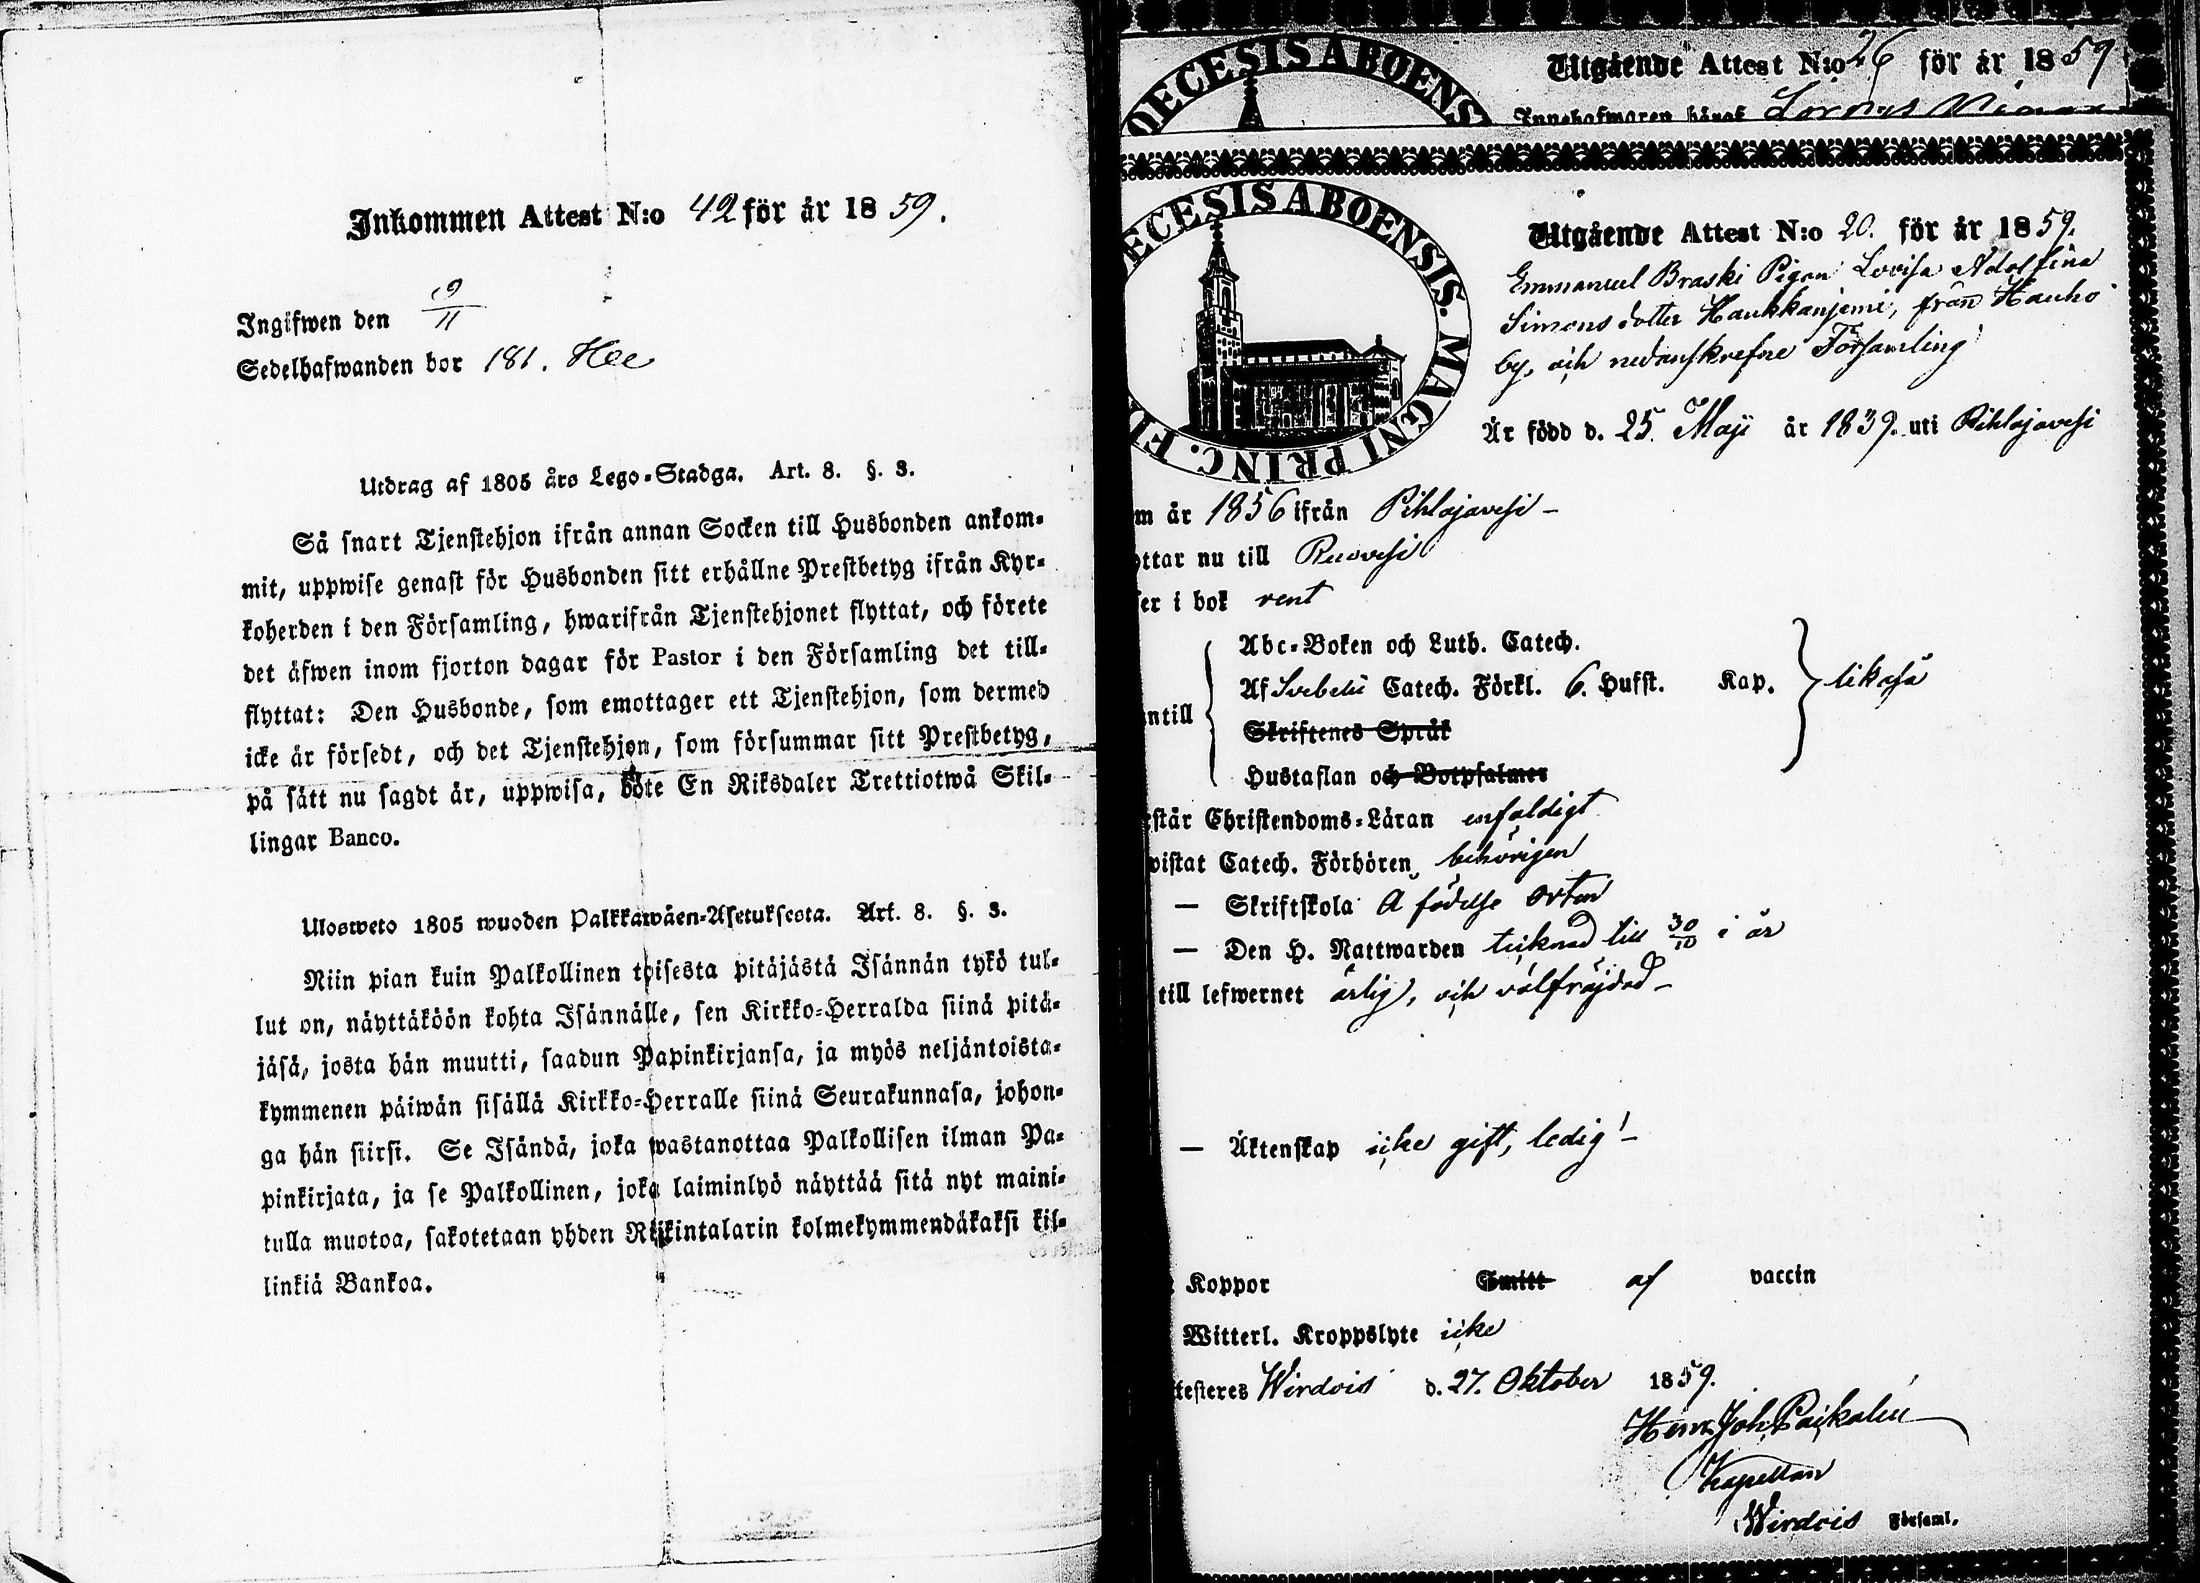 Inkommen Attest N:o 42 för år 1859.
Ingifwen den 9/11
Sedelhafwanden bor 181.
Utdrag af 1805 års Lego-Stadga. Art. 8. §. 3.
Så snart Tjenstehjon ifrån annan Socken till Husbonden ankom-
mit, uppwise genast för Husbonden sitt erhållne Prestbetyg ifrån Kyr-
koherden i den Församling, hwarifrån Tjenstehjonet flyttat, och förete
det äfwen inom fjorton dagar för Pastor i den Församling det till-
flyttat: Den Husbonde, som emottager ett Tjenstehjon, som dermed
icke är försedt, och det Tjenstehjon, som försummar sitt Prestbetyg,
på sätt nu sagdt är, uppwisa, böte En Riksdaler Trettiotwå Skil-
lingar Banco.
Ulosweto 1805 wuoden Palkkawäen-Asetuksesta. Art. 8. §. 3.
Niin pian kuin Palkollinen toisesta pitäjästä Isännän tykö tul-
lut on, näyttäköön kohta Isännälle, sen Kirkko-Herralda siinä pitä-
jäsä, josta hän muutti, saadun Papinkirjansa, ja myös neljäntoista-
kymmenen päiwän sisällä Kirkko-Herralle siinä Seurakunnasa, johon-
ga hän siirsi. Se Isändä, joka wastanottaa Palkollisen ilman Pa-
pinkirjata, ja se Palkollinen, joka laiminlyö näyttää sitä nyt maini-
tulla muotoa, sakotetaan yhden Riikintalarin kolmekymmendäkaksi kil-
linkiä Bankoa.
OECESIS ABOENS
Utgående Attest N:o 26 för år 1859
Innehafwaren häraf
ECESIS ABOENSIS. MAGNI PRINC. FI
Utgående Attest N:o 20. för år 1859.
Emmanuel Braski Pigan Lovisa Adolfina
Simons dotter Haukkanjemi, från Hauho
by, och nedanskrefne Församling
Är född d. 25. Maji år 1839. uti Pihlajavesi
m år 1856 ifrån Pihlajavesi –
ttar nu till Ruovesi
er i bok rent
ntill
Abc-Boken och Luth. Catech.
Af Svebelii Catech. Förkl. 6. Hufst. Kap. likaså
Skriftenes Språk
Hustaflan och Botpsalmer
står Christendoms-Läran enfaldigt
vistat Catech. Förhören behörigen
— Skriftskola å födelse orten
— Den H. Nattwarden teiknad till 30/10 i år
till lefwernet ärlig, och välfräjdad –
— Äktenskap icke gift, ledig! –
Koppor Smitt af vaccin
Witterl. Kroppslyte icke
testeres Wirdois d. 27. Oktober 1859.
Kapellan
Wirdois Församl.